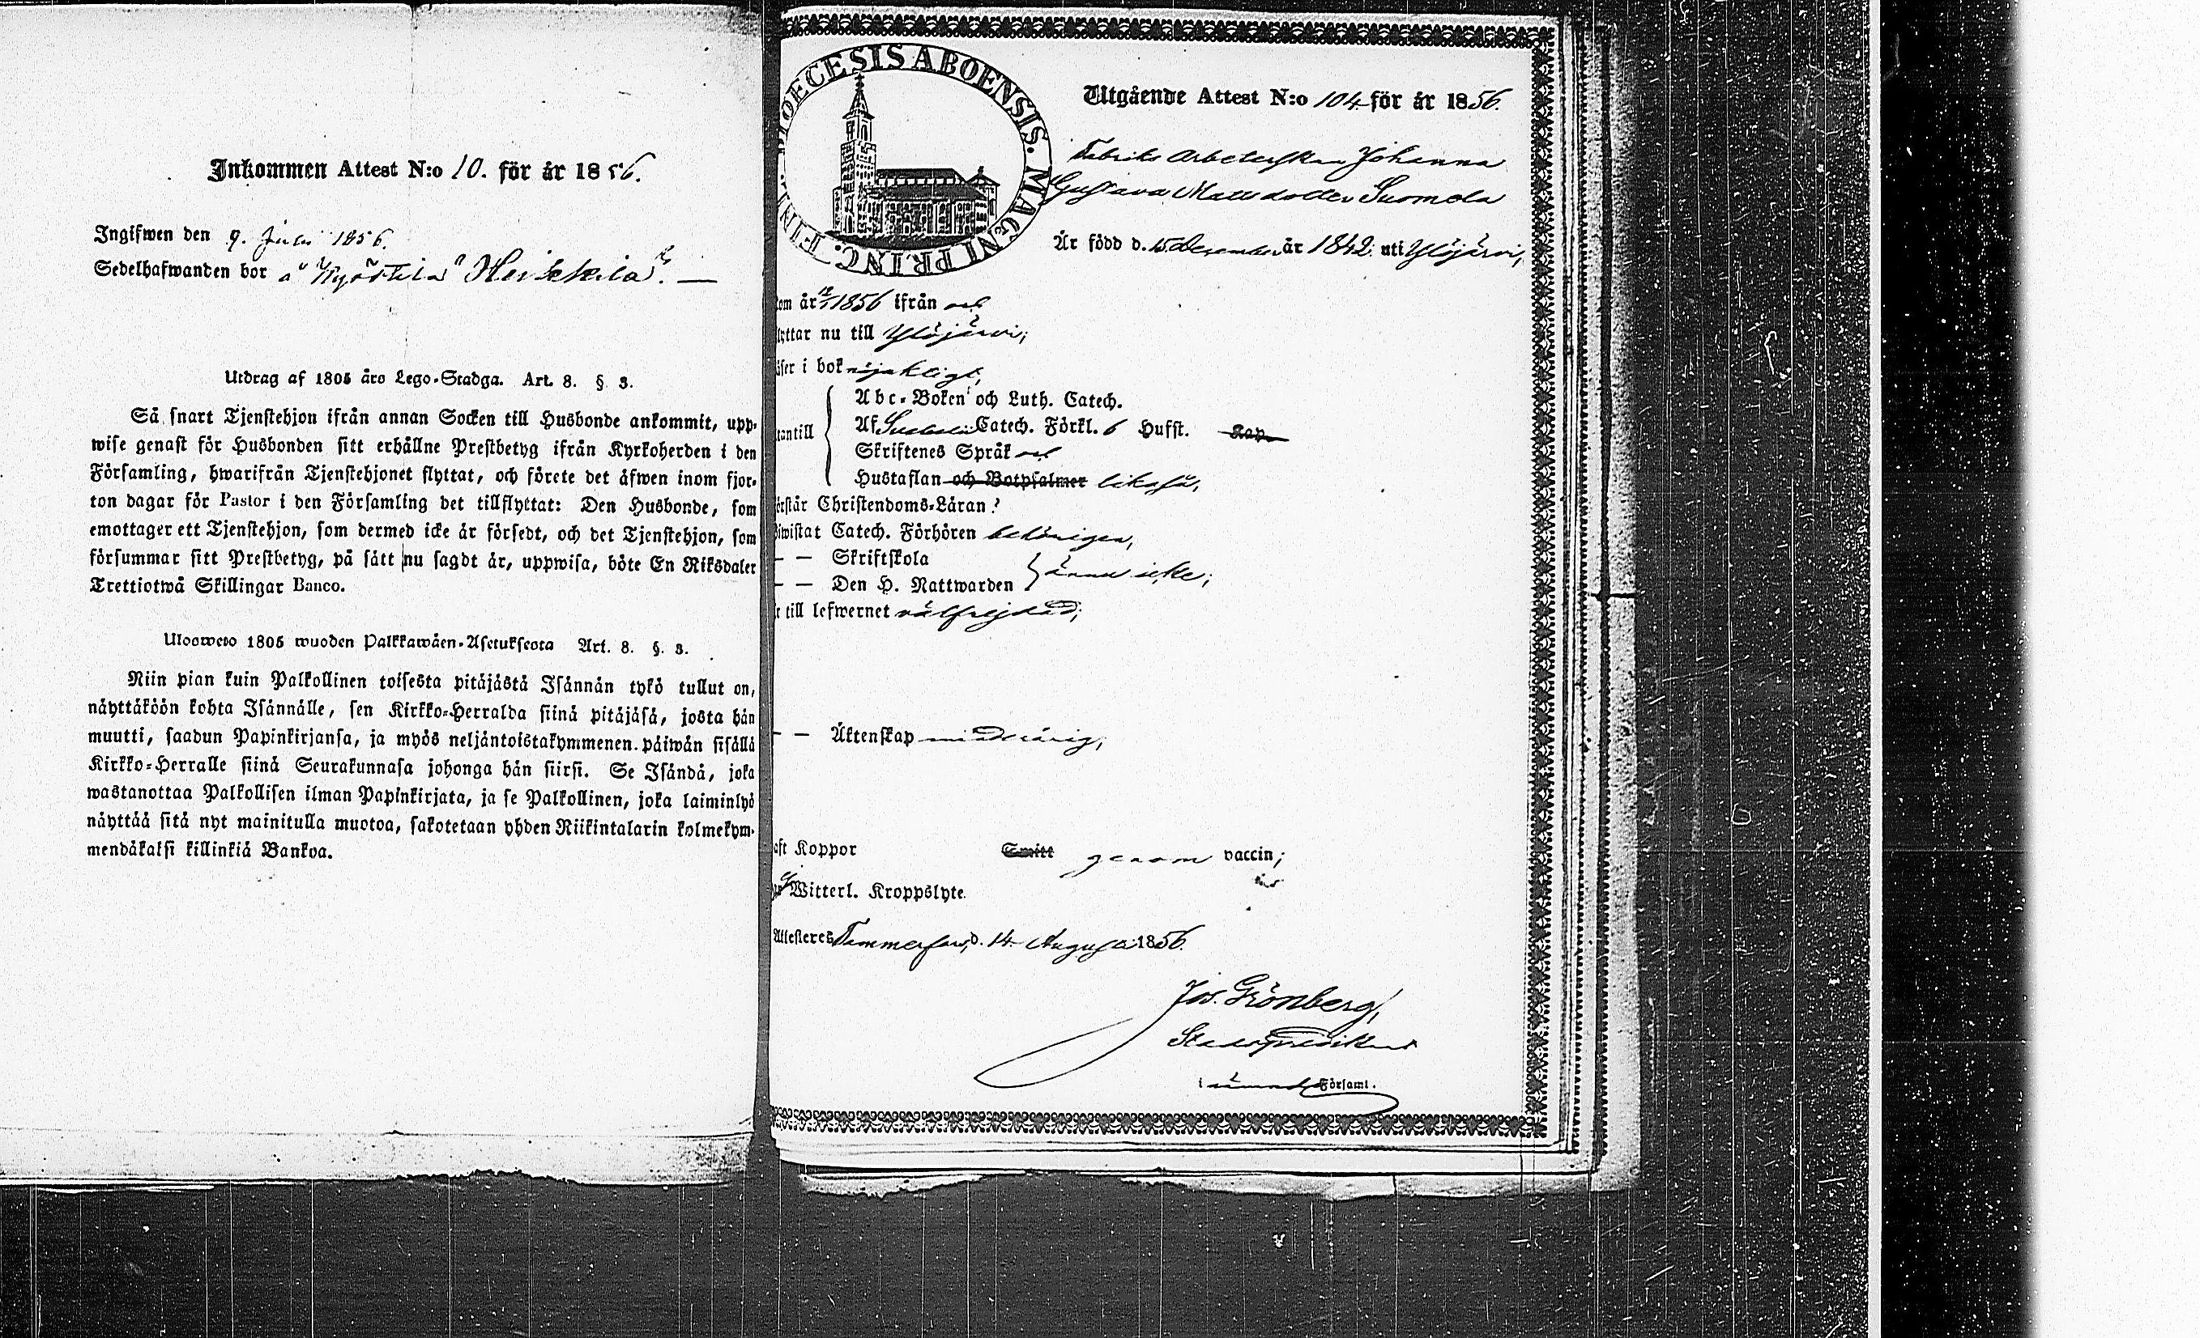 Inkommen Attest N:o 10. för år 1856.
Ingifwen den 9. Juli 1856.
Sedelhafwanden bor å Kyöstilä Heikkilä.
Utdrag af 1805 års Lego-Stadga. Art. 8. § 3.
Så snart Tjenstehjon ifrån annan Socken till Husbonde ankommit, upp-
wise genast för Husbonden sitt erhållne Prestbetyg ifrån Kyrkoherden i den
Församling, hwarifrån Tjenstehjonet flyttat, och förete det äfwen inom fjor-
ton dagar för Pastor i den Församling det tillflyttat: Den Husbonde, som
emottager ett Tjenstehjon, som dermed icke är försedt, och det Tjenstehjon, som
försummar sitt Prestbetyg, på sätt nu sagdt är, uppwisa, böte En Riksdaler
Trettiotwå Skillingar Banco.
Ulosweto 1805 wuoden Palkkawäen-Asetuksesta Art. 8. §. 3.
Niin pian kuin Palkollinen toisesta pitäjästä Isännän tykö tullut on,
näyttäköön kohta Isännälle, sen Kirkko-Herralda siinä pitäjäsä, josta hän
muutti, saadun Papinkirjansa, ja myös neljäntoistakymmenen päiwän sisällä
Kirkko-Herralle siinä Seurakunnasa johonga hän siirsi. Se Isändä, joka
wastanottaa Palkollisen ilman Papinkirjata, ja se Palkollinen, joka laiminlyö
näyttää sitä nyt mainitulla muotoa, sakotetaan yhden Riikintalarin kolmekym-
mendäkaksi killinkiä Bankoa.
DIOECESIS ABOENSIS. MAGNI PRINC. FINL.
Utgående Attest N:o 104 för år 1856.
Fabriks Arbeterskan Johanna
Gustava Mattsdotter Suomela
Är född d. 15 December år 1842 uti Ylöjärvi,
om år 1856 ifrån
yttar nu till Ylöjärvi;
äser i bok nöjaktigt,
Abc-Boken och Luth. Catech.
antill Af Svebelii Catech. Förkl. 6 Hufst. Kap.
Skriftenes Språk
Hustaflan och Botpsalmer likaså,
örstår Christendoms-Läran
iwistat Catech. Förhören behörigen,
— — Skriftskola
— — Den H. Nattwarden ännu icke;
r till lefwernet välfrejdad;
— — Äktenskap minderårig;
aft Koppor Smitt genom vaccin;
Witterl. Kroppslyte
Attesteres Tammerfors, d. 14 Augusti 1856.
Jos. Grönberg,
Stadspredikant
i Församl.